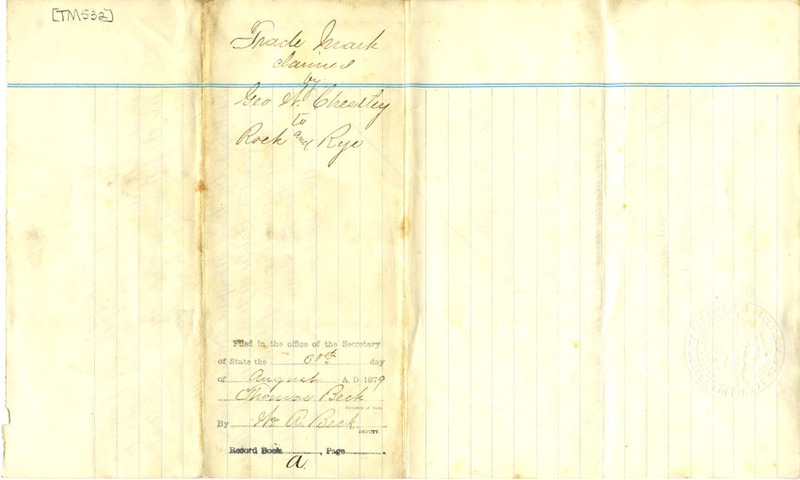 [TM532]
Trade Mark
claimed
by
Geo W. Chesley
to
Rock and Rye
Filed in the office of the Secretary
of State the 30th day
of August A. D. 1879
Thomas Beck
Secretary of State
By Wm R. Beck
DEPUTY
Record Book a, Page